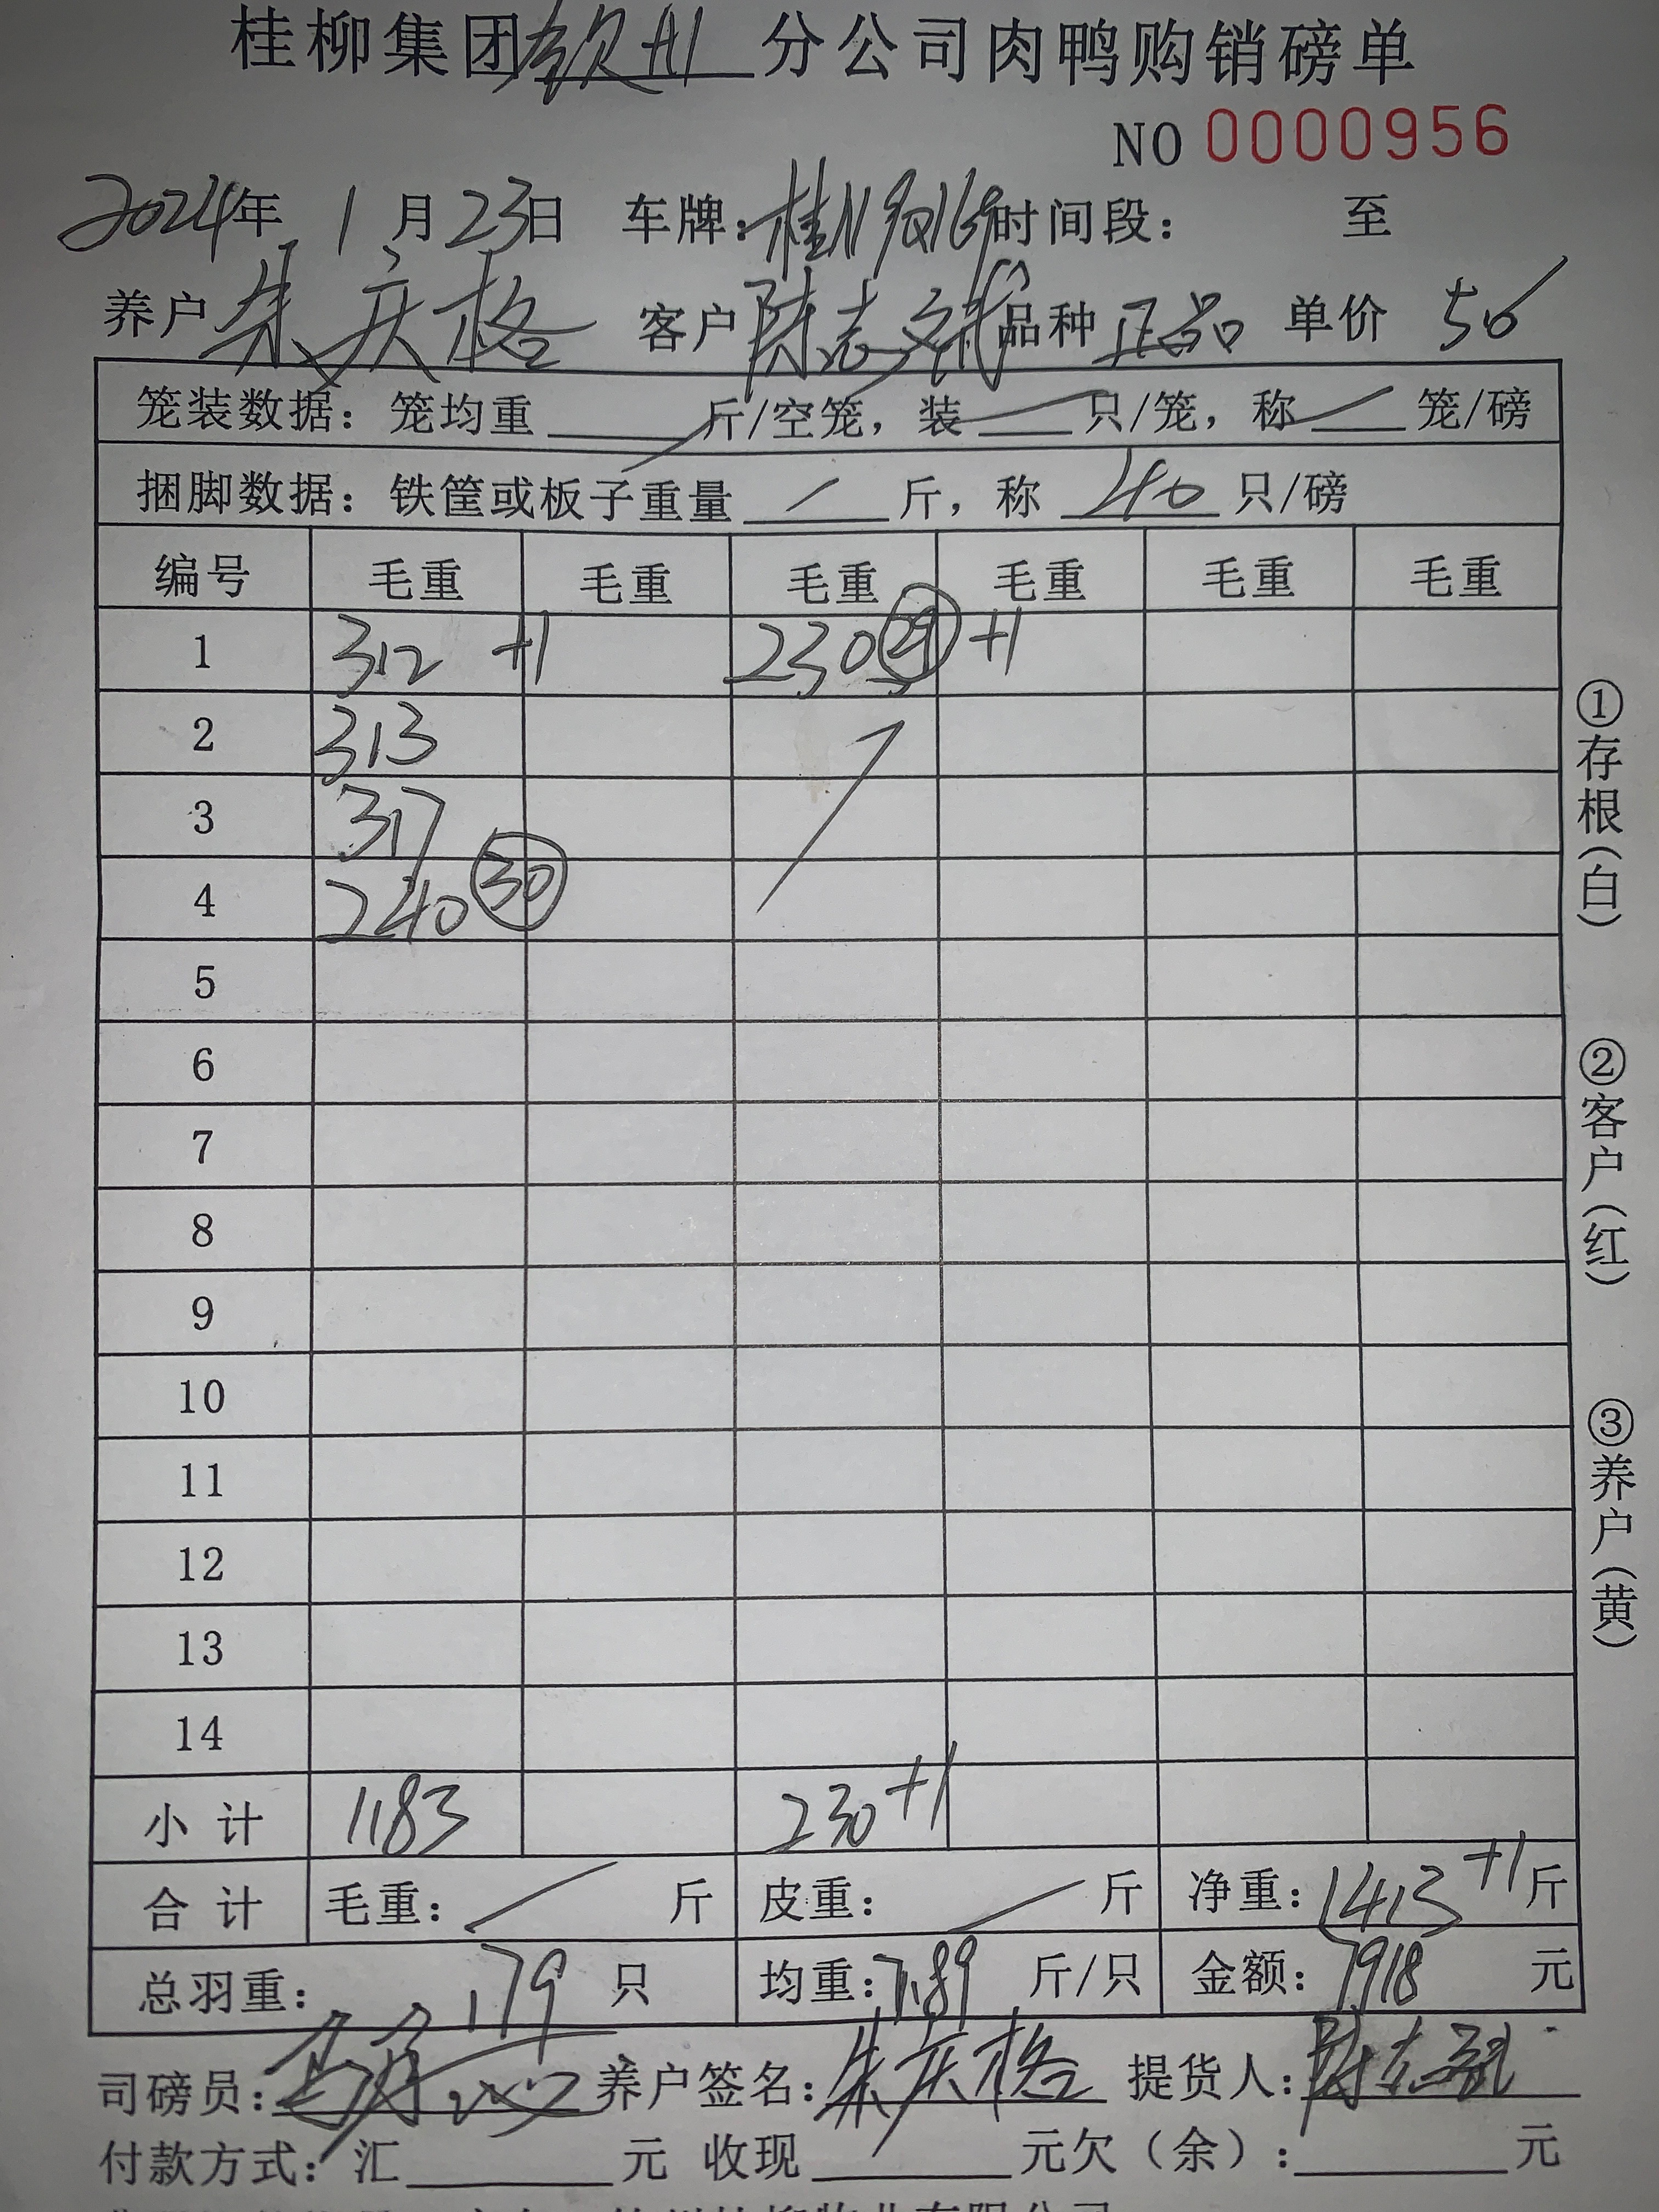 桂柳集团钦州分公司肉鸭购销磅单
NO 0000956
2024年 1 月 23日 车牌: 时间段: 至
养户 朱庆格 客户 陈志斌 品种 正品 单价 56
笼装数据: 笼均重 斤/空笼, 装 只/笼, 称 笼/磅
捆脚数据: 铁筐或板子重量 / 斤, 称 40 只/磅
编号 毛重 毛重 毛重 毛重 毛重 毛重
1 312 +1 230 29 +1
2 313
3 317
4 240 30
5
6
7
8
9
10
11
12
13
14
小计 1183 230+1
合计 毛重: / 斤 皮重: / 斤 净重: 1413+1 斤
总羽重: 179 只 均重: 7.89 斤/只 金额: 7918 元
司磅员: 养户签名: 朱庆格 提货人: 陈志斌
付款方式: 汇 元 收现 元欠(余): 元
①存根(白)
②客户(红)
③养户(黄)